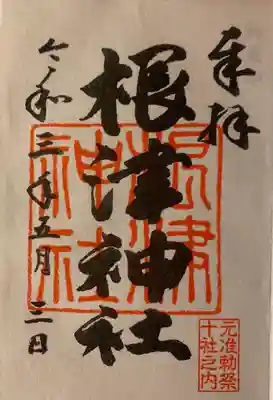 奉拝
根津神社
根津神社
令和三年五月三日
元准勅祭
十社之内